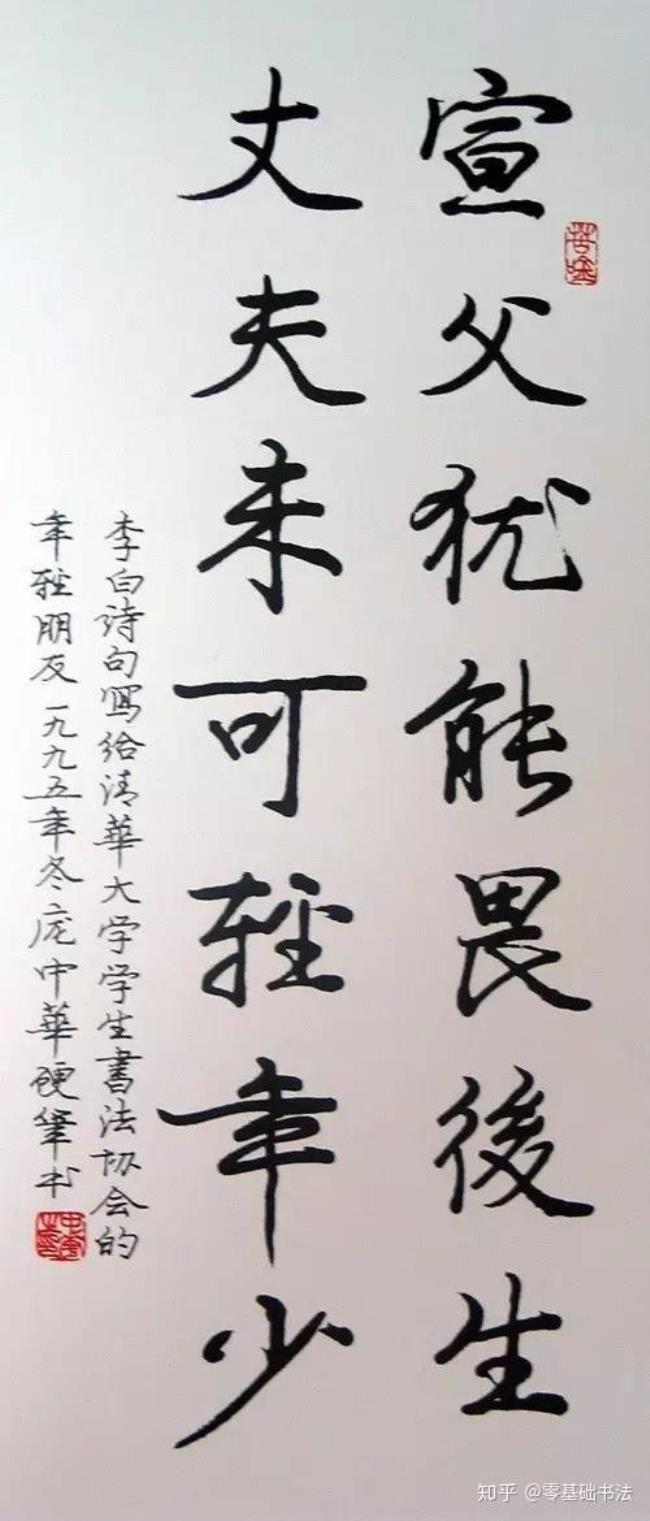 宣父犹能畏後生
丈夫未可轻年少
李白诗句写给清華大学学生書法协会的
年轻朋友一九九五年冬庞中華硬筆书
知乎 @零基础书法